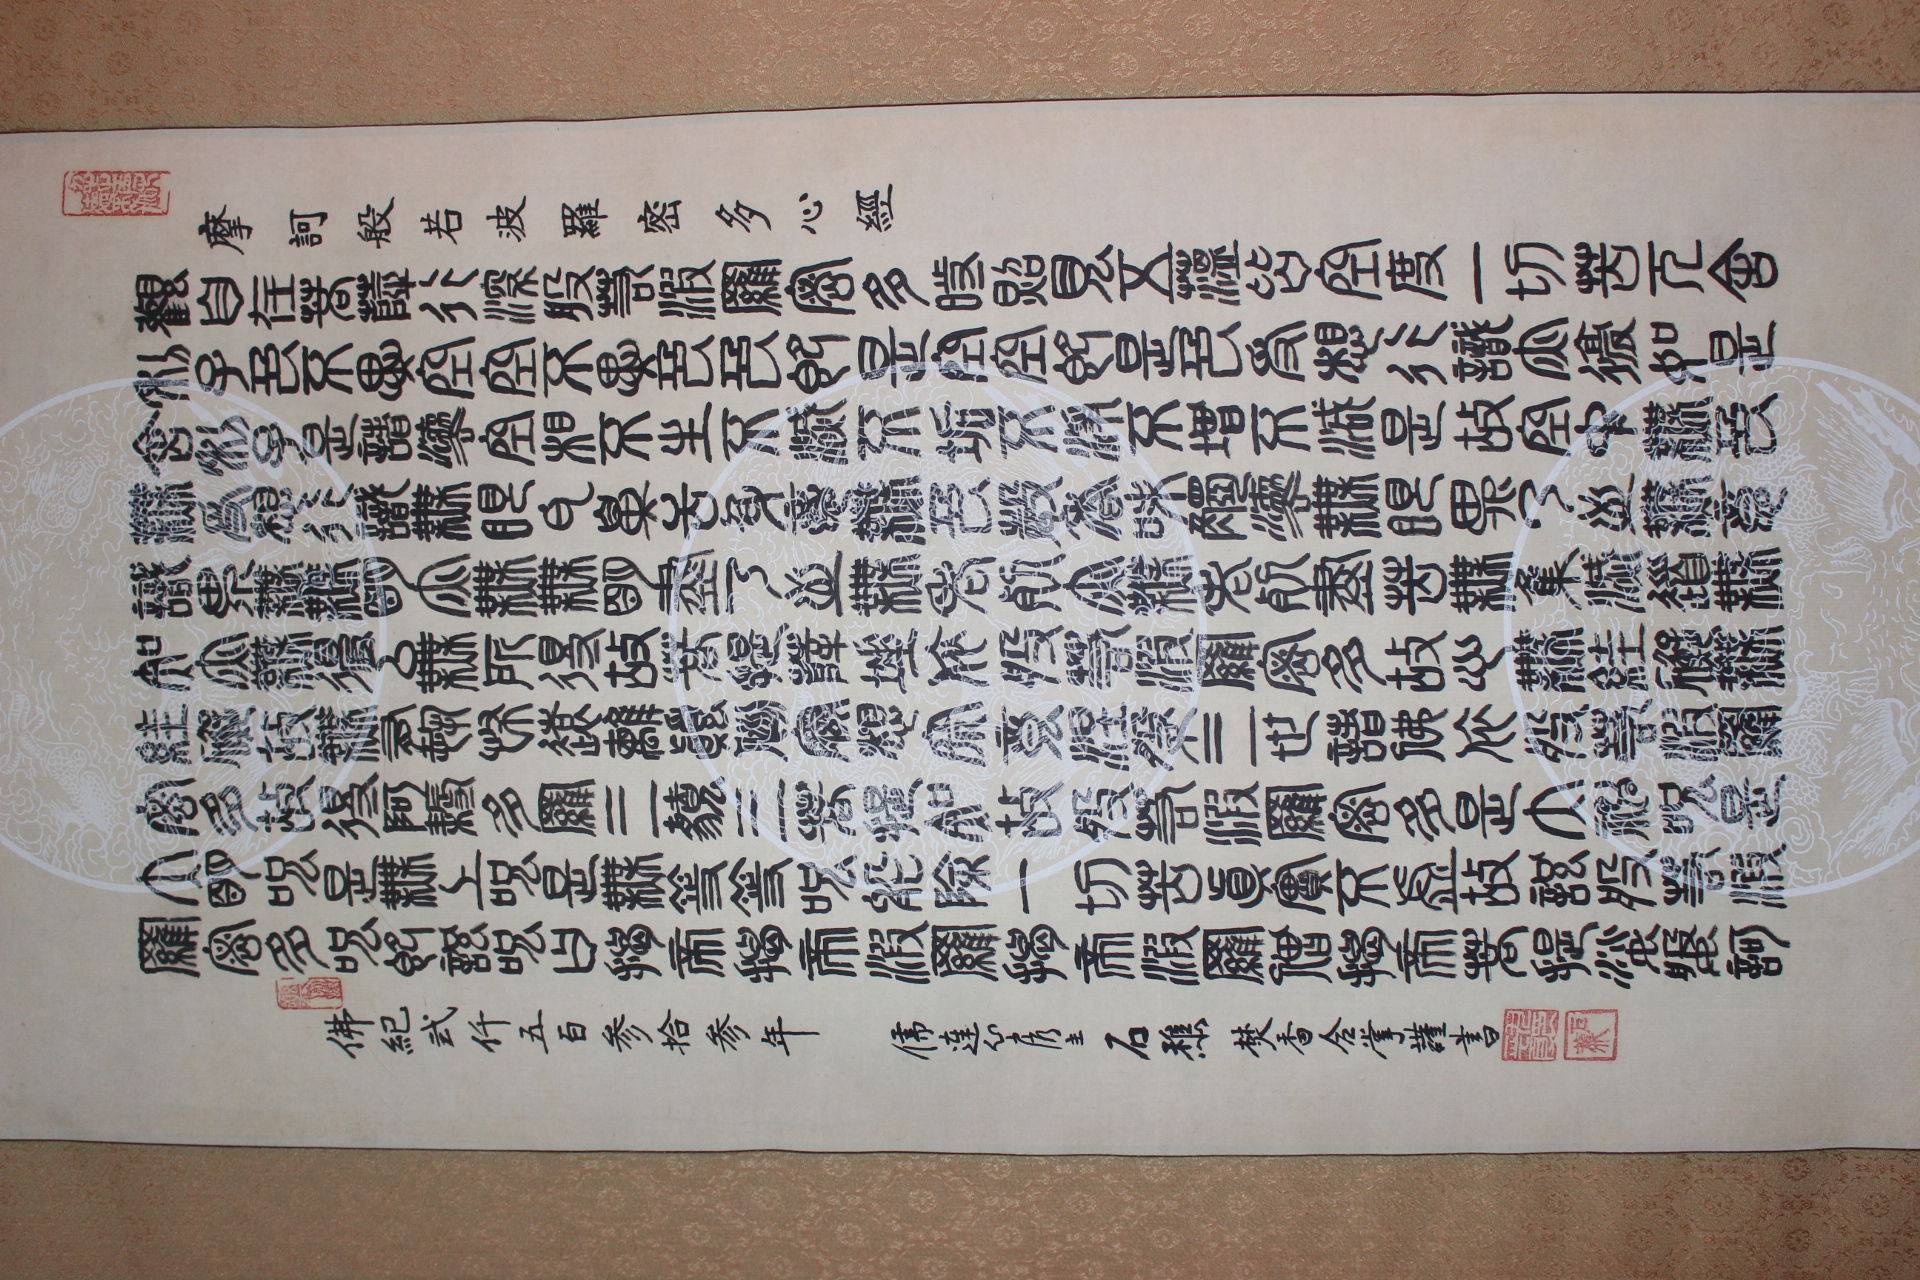 摩訶般若波羅密多心經
觀自在菩薩行深般若波羅密多時照見五蘊皆空度一切苦厄舍
利子色不異空空不異色色即是空空即是色受想行識亦復如是
舍利子是諸法空相不生不滅不垢不淨不增不減是故空中無色
無受想行識無眼耳鼻舌身意無色聲香味觸法無眼界乃至無意
識界無無明亦無無明盡乃至無老死亦無老死盡苦無集滅道無
知亦無得以無所得故菩提薩埵依般若波羅密多故心無罣礙無
罣礙故無有恐怖遠離顛倒夢想究竟涅槃三世諸佛依般若波羅
密多故得阿耨多羅三藐三菩提知故般若波羅密多是大神咒是
大明咒是無上咒是無等等咒能除一切苦真實不虛故說般若波
羅密多咒即說咒曰揭帝揭帝波羅揭帝波羅僧揭帝菩提娑婆訶
佛紀弍仟五百參拾參年 儒蓮山房主 石 焚香合掌謹書